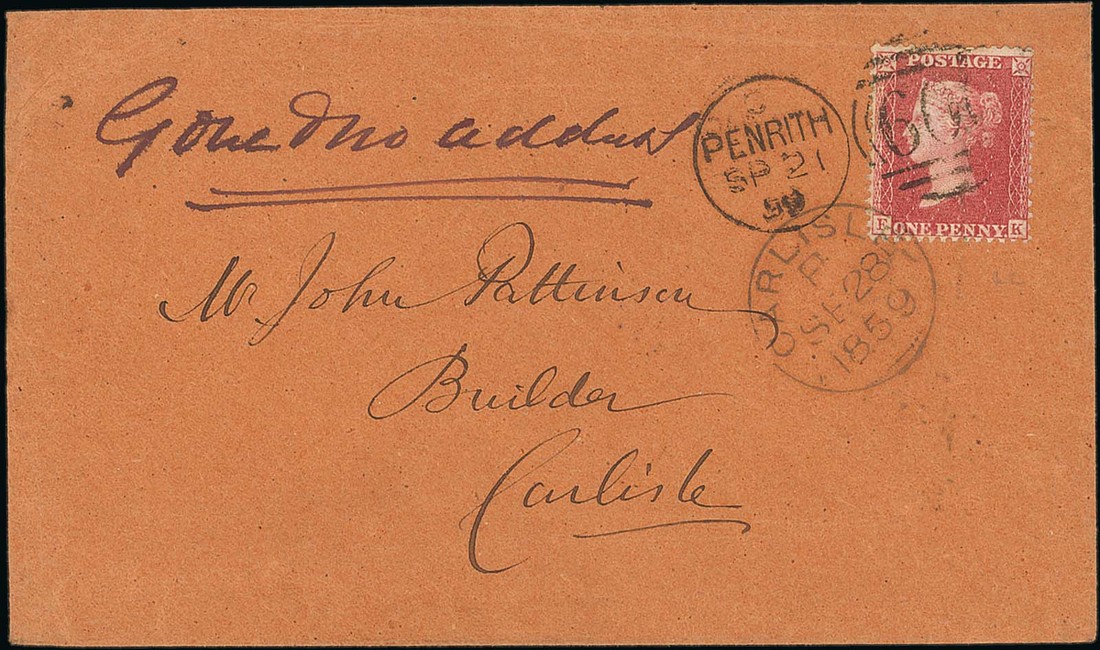 POSTAGE
PENRITH
SP 21
59
ONE PENNY
K
Gone & no address
CARLISLE
SE 28
1859
Mr John Pattinson
Builder
Carlisle